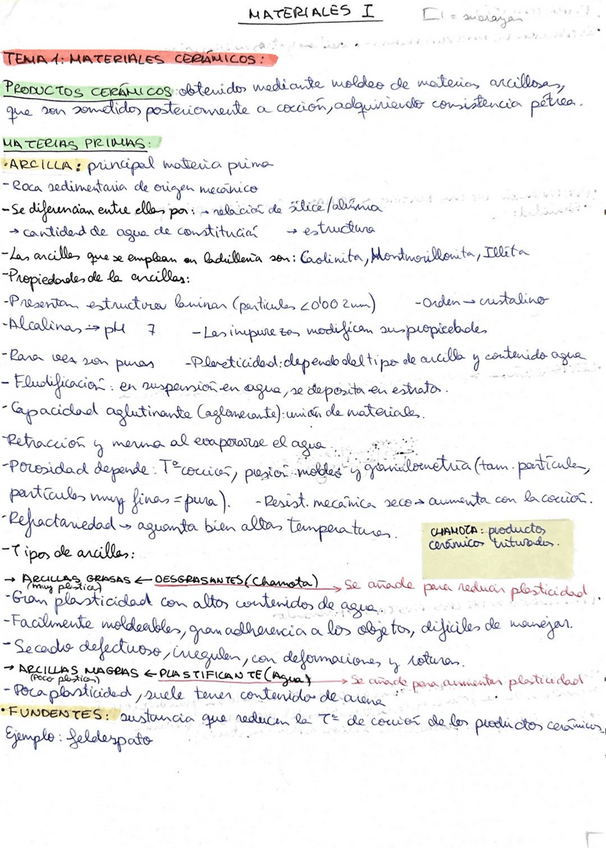 MATERIALES I
[ ] = subrayar
TEMA 1: MATERIALES CERÁMICOS:
PRODUCTOS CERÁMICOS: obtenidos mediante moldeo de materias arcillosas,
que son sometidos posteriormente a cocción, adquiriendo consistencia pétrea.
MATERIAS PRIMAS:
·ARCILLA: principal materia prima
-Roca sedimentaria de origen mecánico
-Se diferencian entre ellas por: → relación de sílice/alúmina
→ cantidad de agua de constitución → estructura
-Las arcillas que se emplean en ladrillería son: Caolinita, Montmorillonita, Illita
-Propiedades de la arcillas:
-Presentan estructura laminar (partículas <0'002mm) -Orden → cristalino
-Alcalinas → pH 7 -Las impurezas modifican sus propiedades
-Rara vez son puras -Plasticidad: depende del tipo de arcilla y contenido agua
-Fluidificación: en suspensión en agua, se deposita en estratos.
-Capacidad aglutinante (aglomerante): unión de materiales.
-Retracción y merma al evaporarse el agua
-Porosidad depende: Tº cocción, presión moldeo y granulometría (tam. partículas,
partículas muy finas = pura). -Resist. mecánica seco → aumenta con la cocción.
-Refractariedad → aguanta bien altas temperaturas.
CHAMOTA: productos
cerámicos triturados.
-Tipos de arcillas:
→ ARCILLAS GRASAS ← DESGRASANTES (Chamota) → Se añade para reducir plasticidad
(muy plástica)
-Gran plasticidad con altos contenidos de agua
-Facilmente moldeables, gran adherencia a los objetos, difíciles de manejar.
-Secado defectuoso, irregular, con deformaciones y roturas.
→ ARCILLAS MAGRAS ← PLASTIFICANTE (Agua) → Se añade para aumentar plasticidad
(Poco plástica)
-Poca plasticidad, suele tener contenido de arena
·FUNDENTES: sustancia que reducen la Tº de cocción de los productos cerámicos,
Ejemplo: feldespato